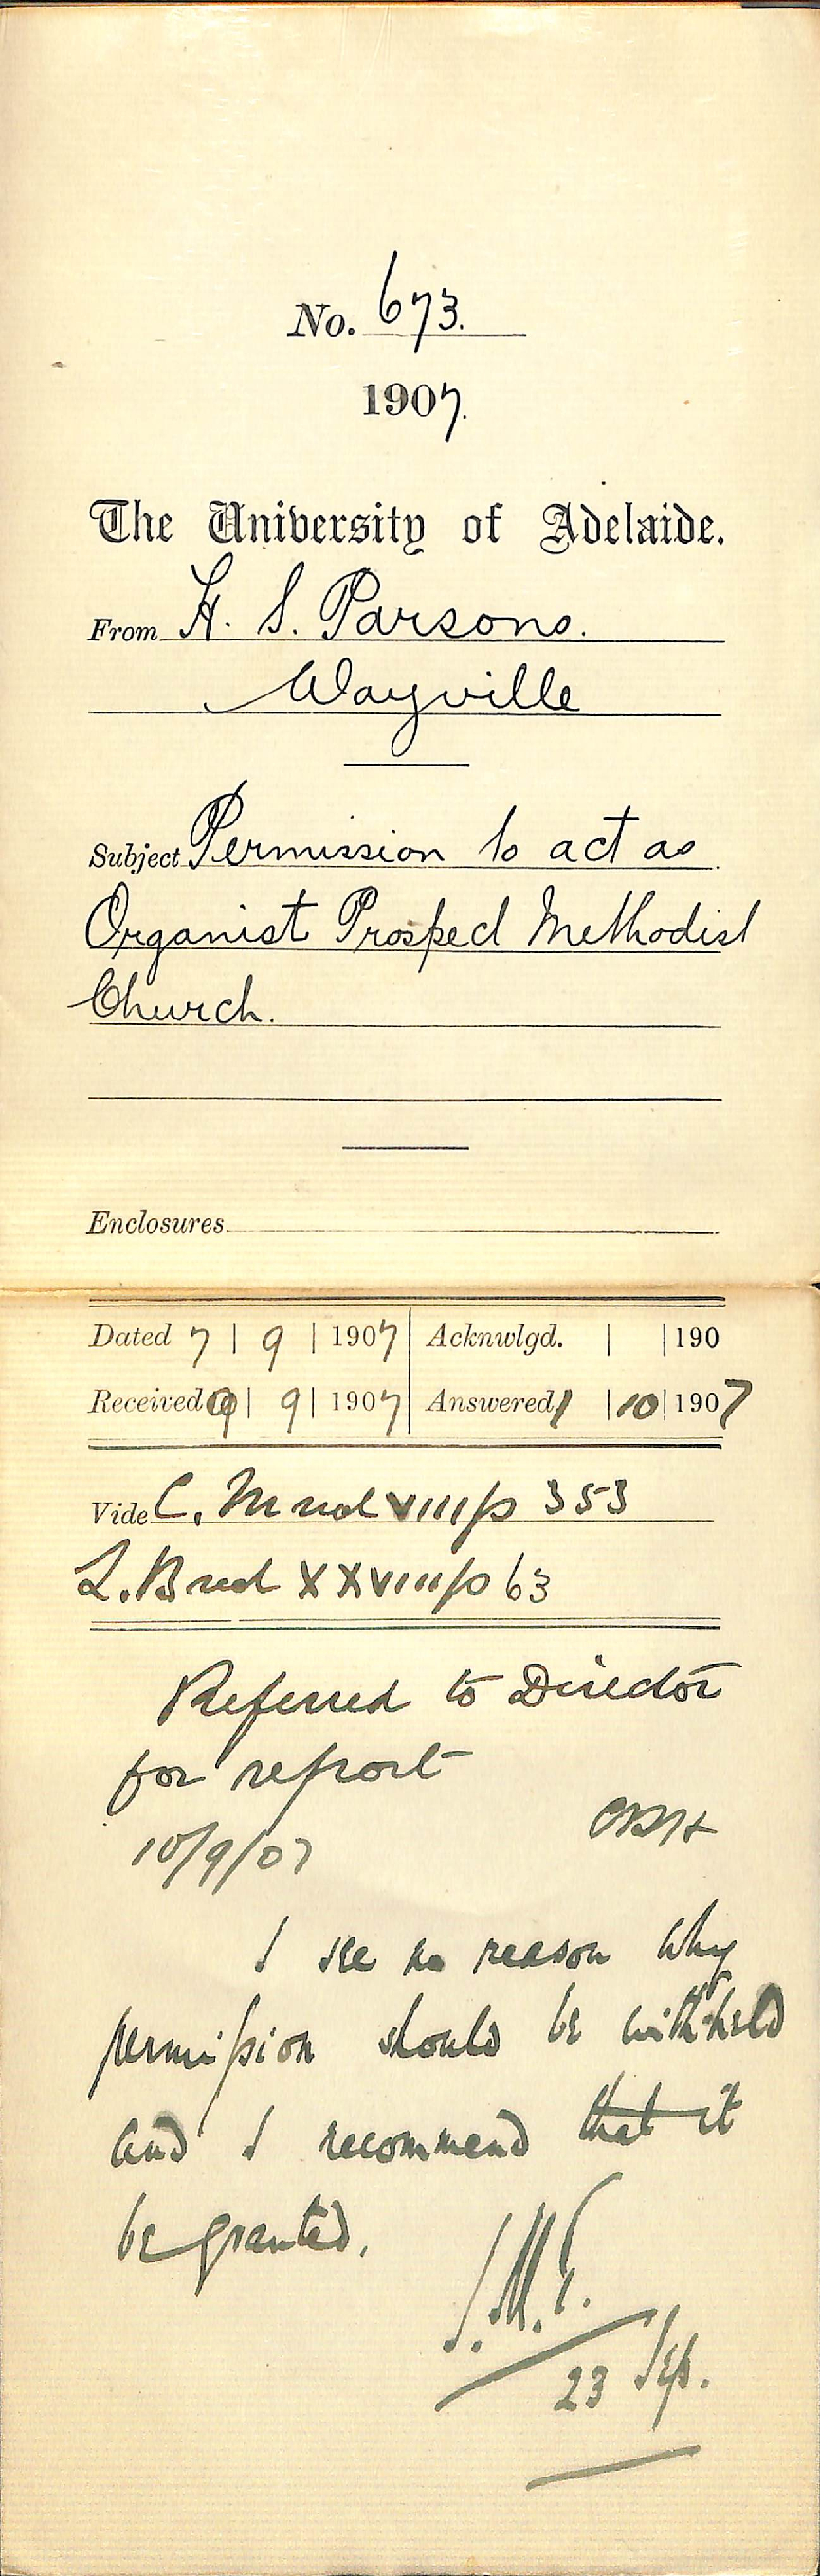 No. 673.
1907.
The University of Adelaide.
From H. S. Parsons.
Wayville
Subject Permission to act as
Organist Prospect Methodist
Church.
Enclosures
Dated 7 | 9 | 1907 | Acknwlgd. | | 190
Received 9 | 9 | 1907 | Answered 1 | 10 | 1907
Vide C. M vol VIII p 353
L. B vol XXVIII p 63
Referred to Director
for report
10/9/07
I see no reason why
permission should be withheld
and I recommend that it
be granted.
23 Sep.